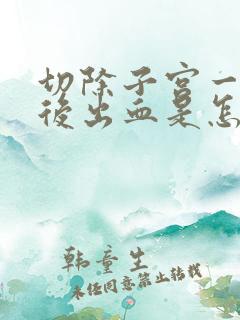 切除子宫一
後出血是怎
韩童生
未经同意禁止转载